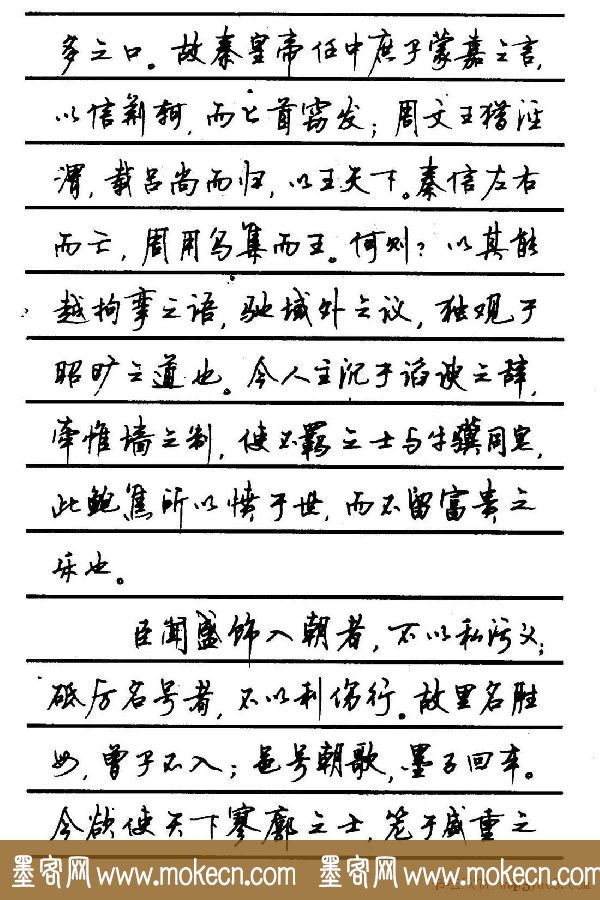 多之口。故秦皇帝任中庶子蒙嘉之言，
以信荆轲，而匕首窃发；周文王猎泾
渭，载吕尚而归，以王天下。秦信左右
而亡，周用乌集而王。何则？以其能
越拘挛之语，驰域外之议，独观于
昭旷之道也。今人主沉于谄谀之辞，
牵帷墙之制，使不羁之士与牛骥同皂，
此鲍焦所以愤于世，而不留富贵之
乐也。
臣闻盛饰入朝者，不以私污义；
砥厉名号者，不以利伤行。故里名胜
母，曾子不入；邑号朝歌，墨子回车。
今欲使天下寥廓之士，笼于威重之
墨客网 www.mokecn.com 墨客网 www.mokecn.com